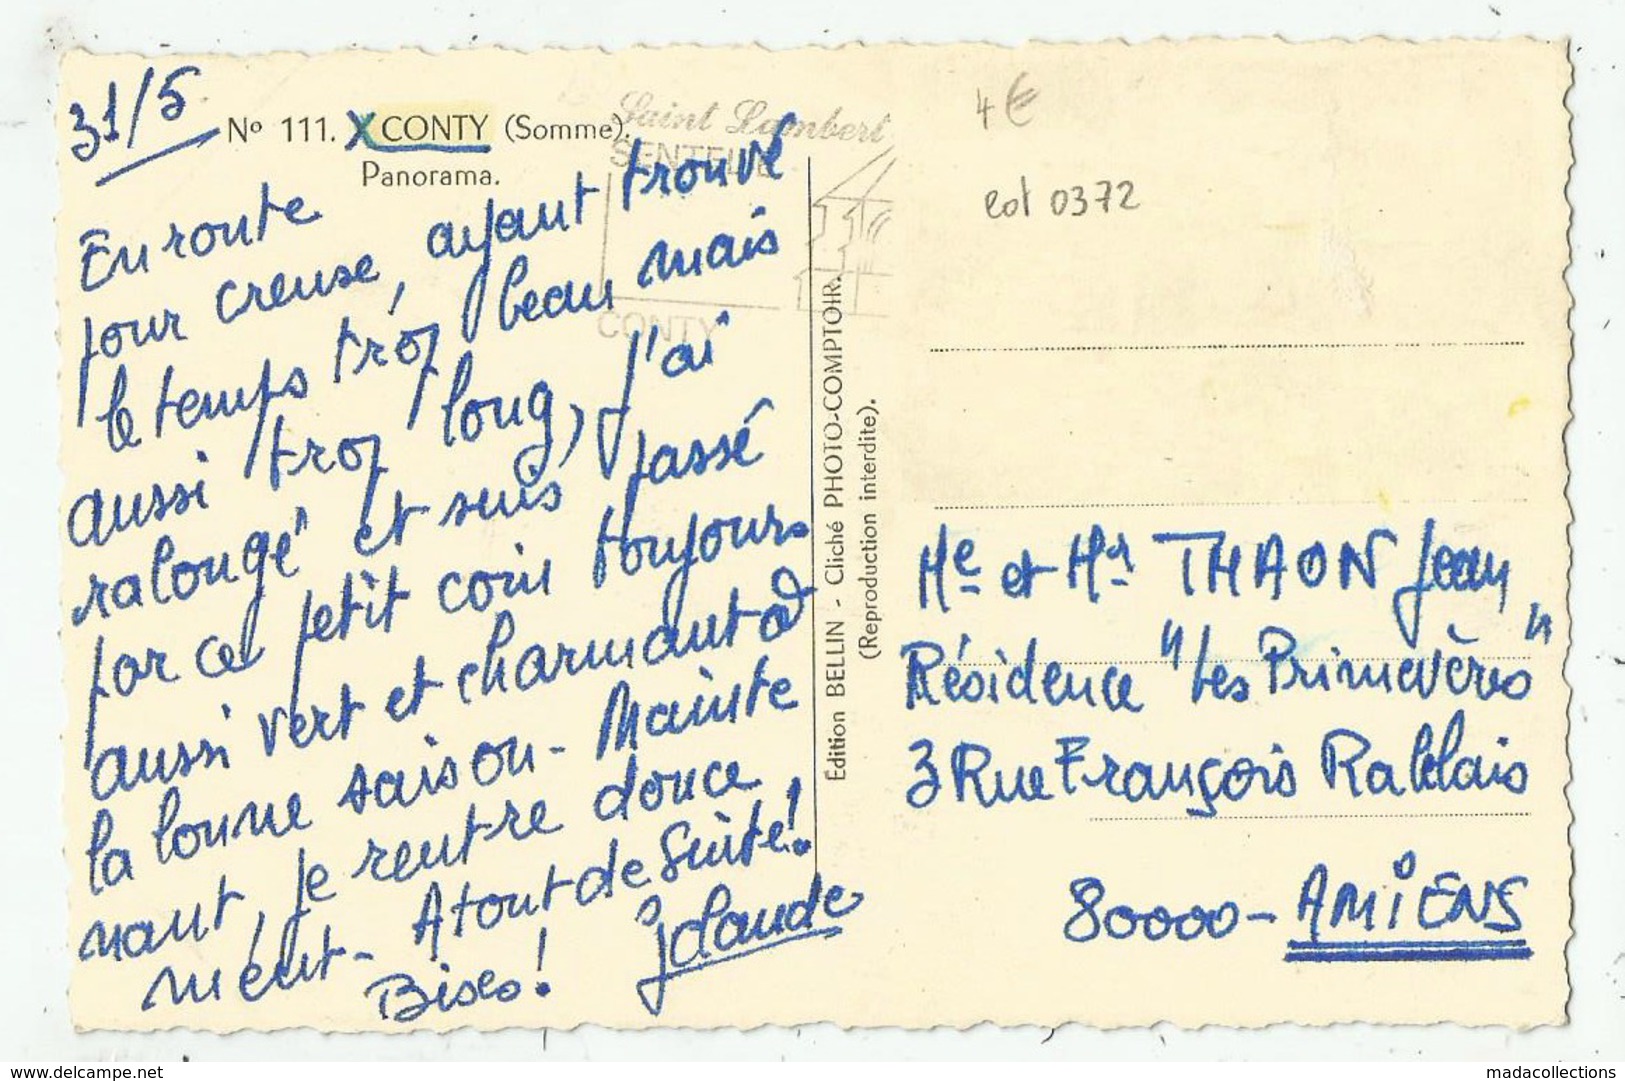 31/5
Nº 111. X CONTY (Somme).
Panorama.
Saint Lambert
CONTY
En route
pour creuse, ayant trouvé
le temps trop beau mais
aussi trop long, j'ai
ralongé et suis passé
par ce petit coin toujours
aussi vert et charmant à
la bonne saison - Mainte
nant, je rentre douce
ment - A tout de suite!
Bises! JClaude
Édition BELLIN - Cliché PHOTO-COMPTOIR.
(Reproduction interdite).
4€
0372
Me et Mr THAON Jean
Résidence "Les Primevères"
3 Rue François Rabelais
80000 - AMiENS
www.delcampe.net
madacollections